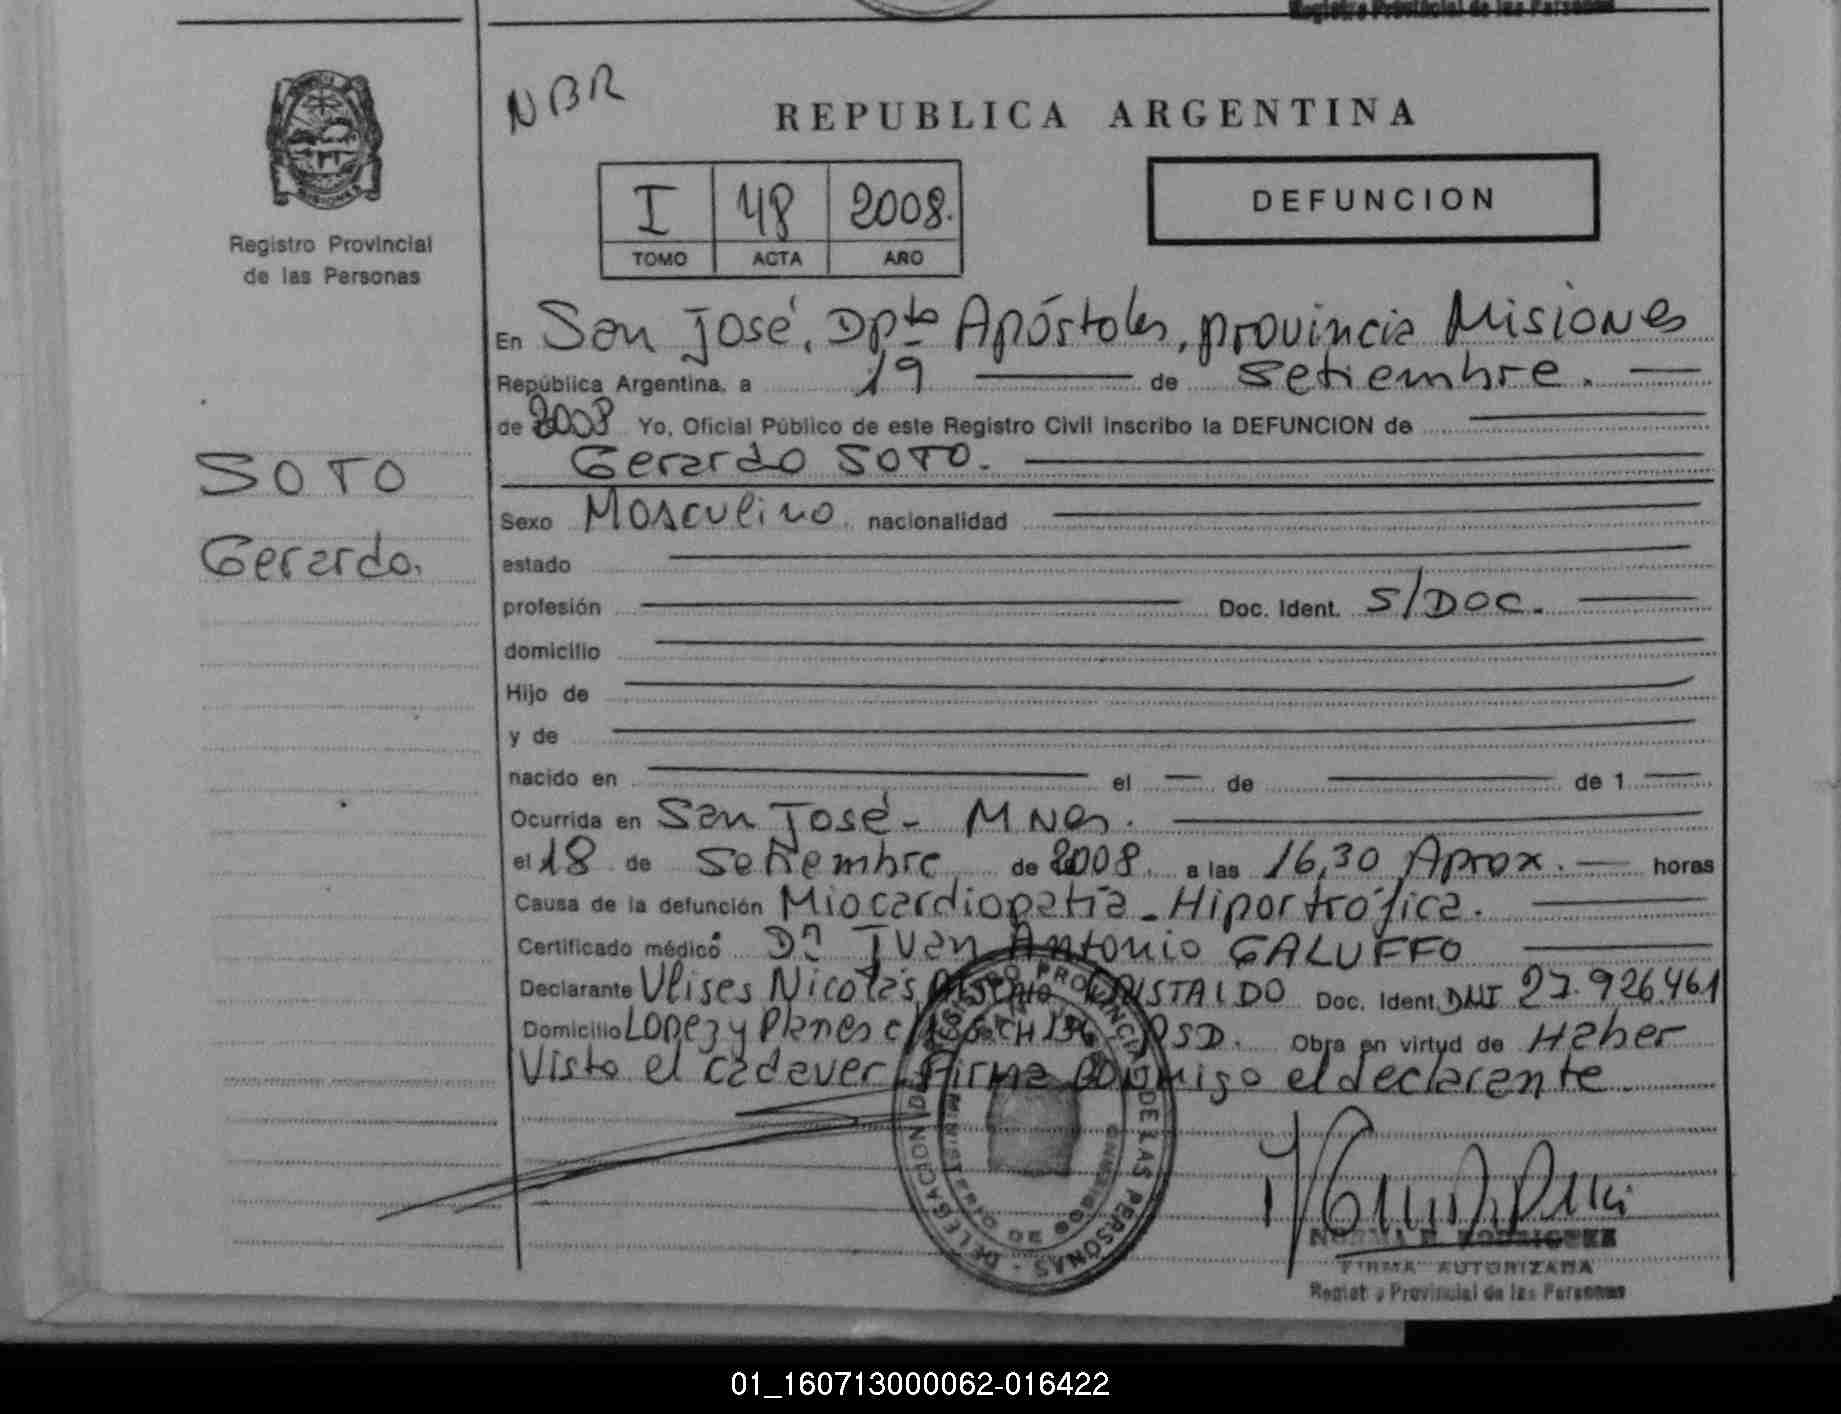 Registro Provincial de las Personas
NBR
REPUBLICA ARGENTINA
I 48 2008.
TOMO ACTA AÑO
DEFUNCION
MISIONES
Registro Provincial
de las Personas
SOTO
Gerardo.
En San José, Dpto Apóstoles, provincia Misiones
República Argentina, a 19 de Setiembre.
de 2008 Yo, Oficial Público de este Registro Civil inscribo la DEFUNCION de
Gerardo SOTO.
Sexo Masculino nacionalidad
estado
profesión Doc. Ident. S/DOC.
domicilio
Hijo de
y de
nacido en el de de 1
Ocurrida en San José - Mnes.
el 18 de Setiembre de 2008 a las 16,30 Aprox. horas
Causa de la defunción Miocardiopatía - Hipertrófica.
Certificado médico Dn Juan Antonio GALUFFO
Declarante Ulises Nicolás CRISTALDO Doc. Ident. DNI 27.926.461
Domicilio Lopez y Planes PSD. Obra en virtud de Haber
Visto el cadaver. Firma conmigo el declarante
DELEGACION DE REGISTRO PROVINCIAL DE LAS PERSONAS
MINISTERIO DE GOBIERNO
NORMA B. RODRIGUEZ
FIRMA AUTORIZADA
Registro Provincial de las Personas
01_160713000062-016422